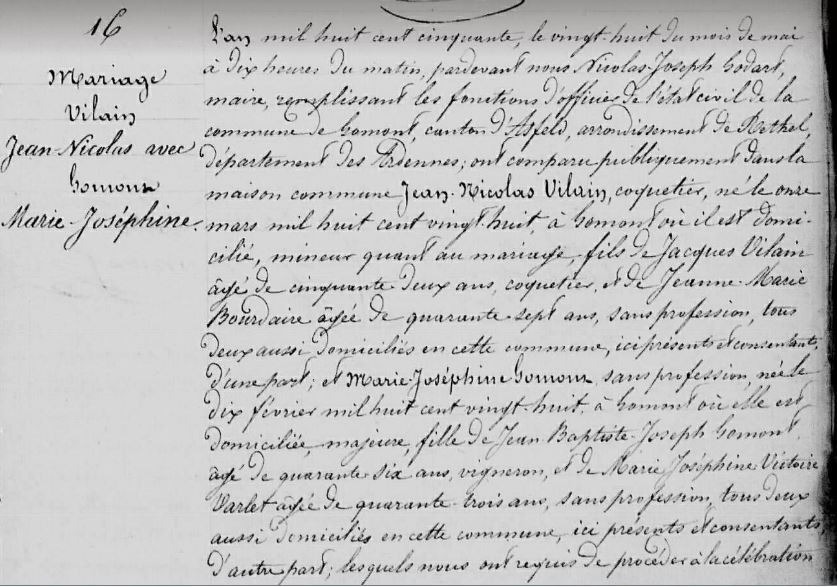 16
Mariage
Vilain
Jean-Nicolas avec
Gomont
Marie-Joséphine.
L'an mil huit cent cinquante, le vingt-huit du mois de mai
à dix heures du matin, pardevant nous Nicolas-Joseph Godart,
maire, remplissant les fonctions d'officier de l'état civil de la
commune de Gomont, canton d'Asfeld, arrondissement de Rethel,
département des Ardennes; ont comparu publiquement dans la
maison commune Jean-Nicolas Vilain, coquetier, né le onze
mars mil huit cent vingt-huit, à Gomont où il est domi-
cilié, mineur quant au mariage, fils de Jacques Vilain
âgé de cinquante-deux ans, coquetier, et de Jeanne-Marie
Bourdaire âgée de quarante-sept ans, sans profession, tous
deux aussi domiciliés en cette commune, ici présents et consentants,
d'une part; et Marie-Joséphine Gomont, sans profession, née le
dix février mil huit cent vingt-huit, à Gomont où elle est
domiciliée, majeure, fille de Jean-Baptiste-Joseph Gomont,
âgé de quarante-six ans, vigneron, et de Marie-Joséphine Victoire
Varlet âgée de quarante-trois ans, sans profession, tous deux
aussi domiciliés en cette commune, ici présents et consentants,
d'autre part; lesquels nous ont requis de procéder à la célébration